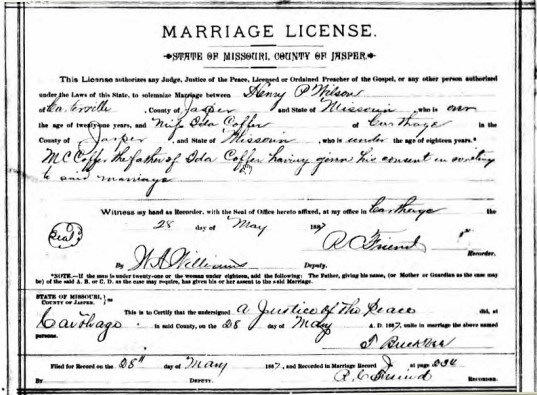 MARRIAGE LICENSE.
STATE OF MISSOURI, COUNTY OF JASPER.
This License authorizes any Judge, Justice of the Peace, Licensed or Ordained Preacher of the Gospel, or any other person authorized
under the Laws of this State, to solemnize Marriage between Henry P Wilson
of , County of Jasper and State of Missouri, who is over
the age of twenty-one years, and Miss Ida Coffer of Carthage in the
County of Jasper, and State of Missouri, who is under the age of eighteen years.*
M C Coffer the father of Ida Coffer having given his consent in writing
to said marriage
Witness my hand as Recorder, with the Seal of Office hereto affixed, at my office in Carthage the
28 day of May 1887
Seal R Friend Recorder.
By Deputy.
*NOTE.—If the man is under twenty-one or the woman under eighteen, add the following: The Father, giving his name, (or Mother or Guardian as the case may
be) of the said A. B. or C. D. as the case may require, has given his or her assent to the said Marriage.
STATE OF MISSOURI,
COUNTY OF JASPER. ss
This is to Certify that the undersigned a Justice of the Peace did, at
Carthage in said County, on the 28 day of May A. D. 1887, unite in marriage the above named
persons.
Filed for Record on the 28th day of May 1887, and Recorded in Marriage Record J at page 234
By DEPUTY. RECORDER.